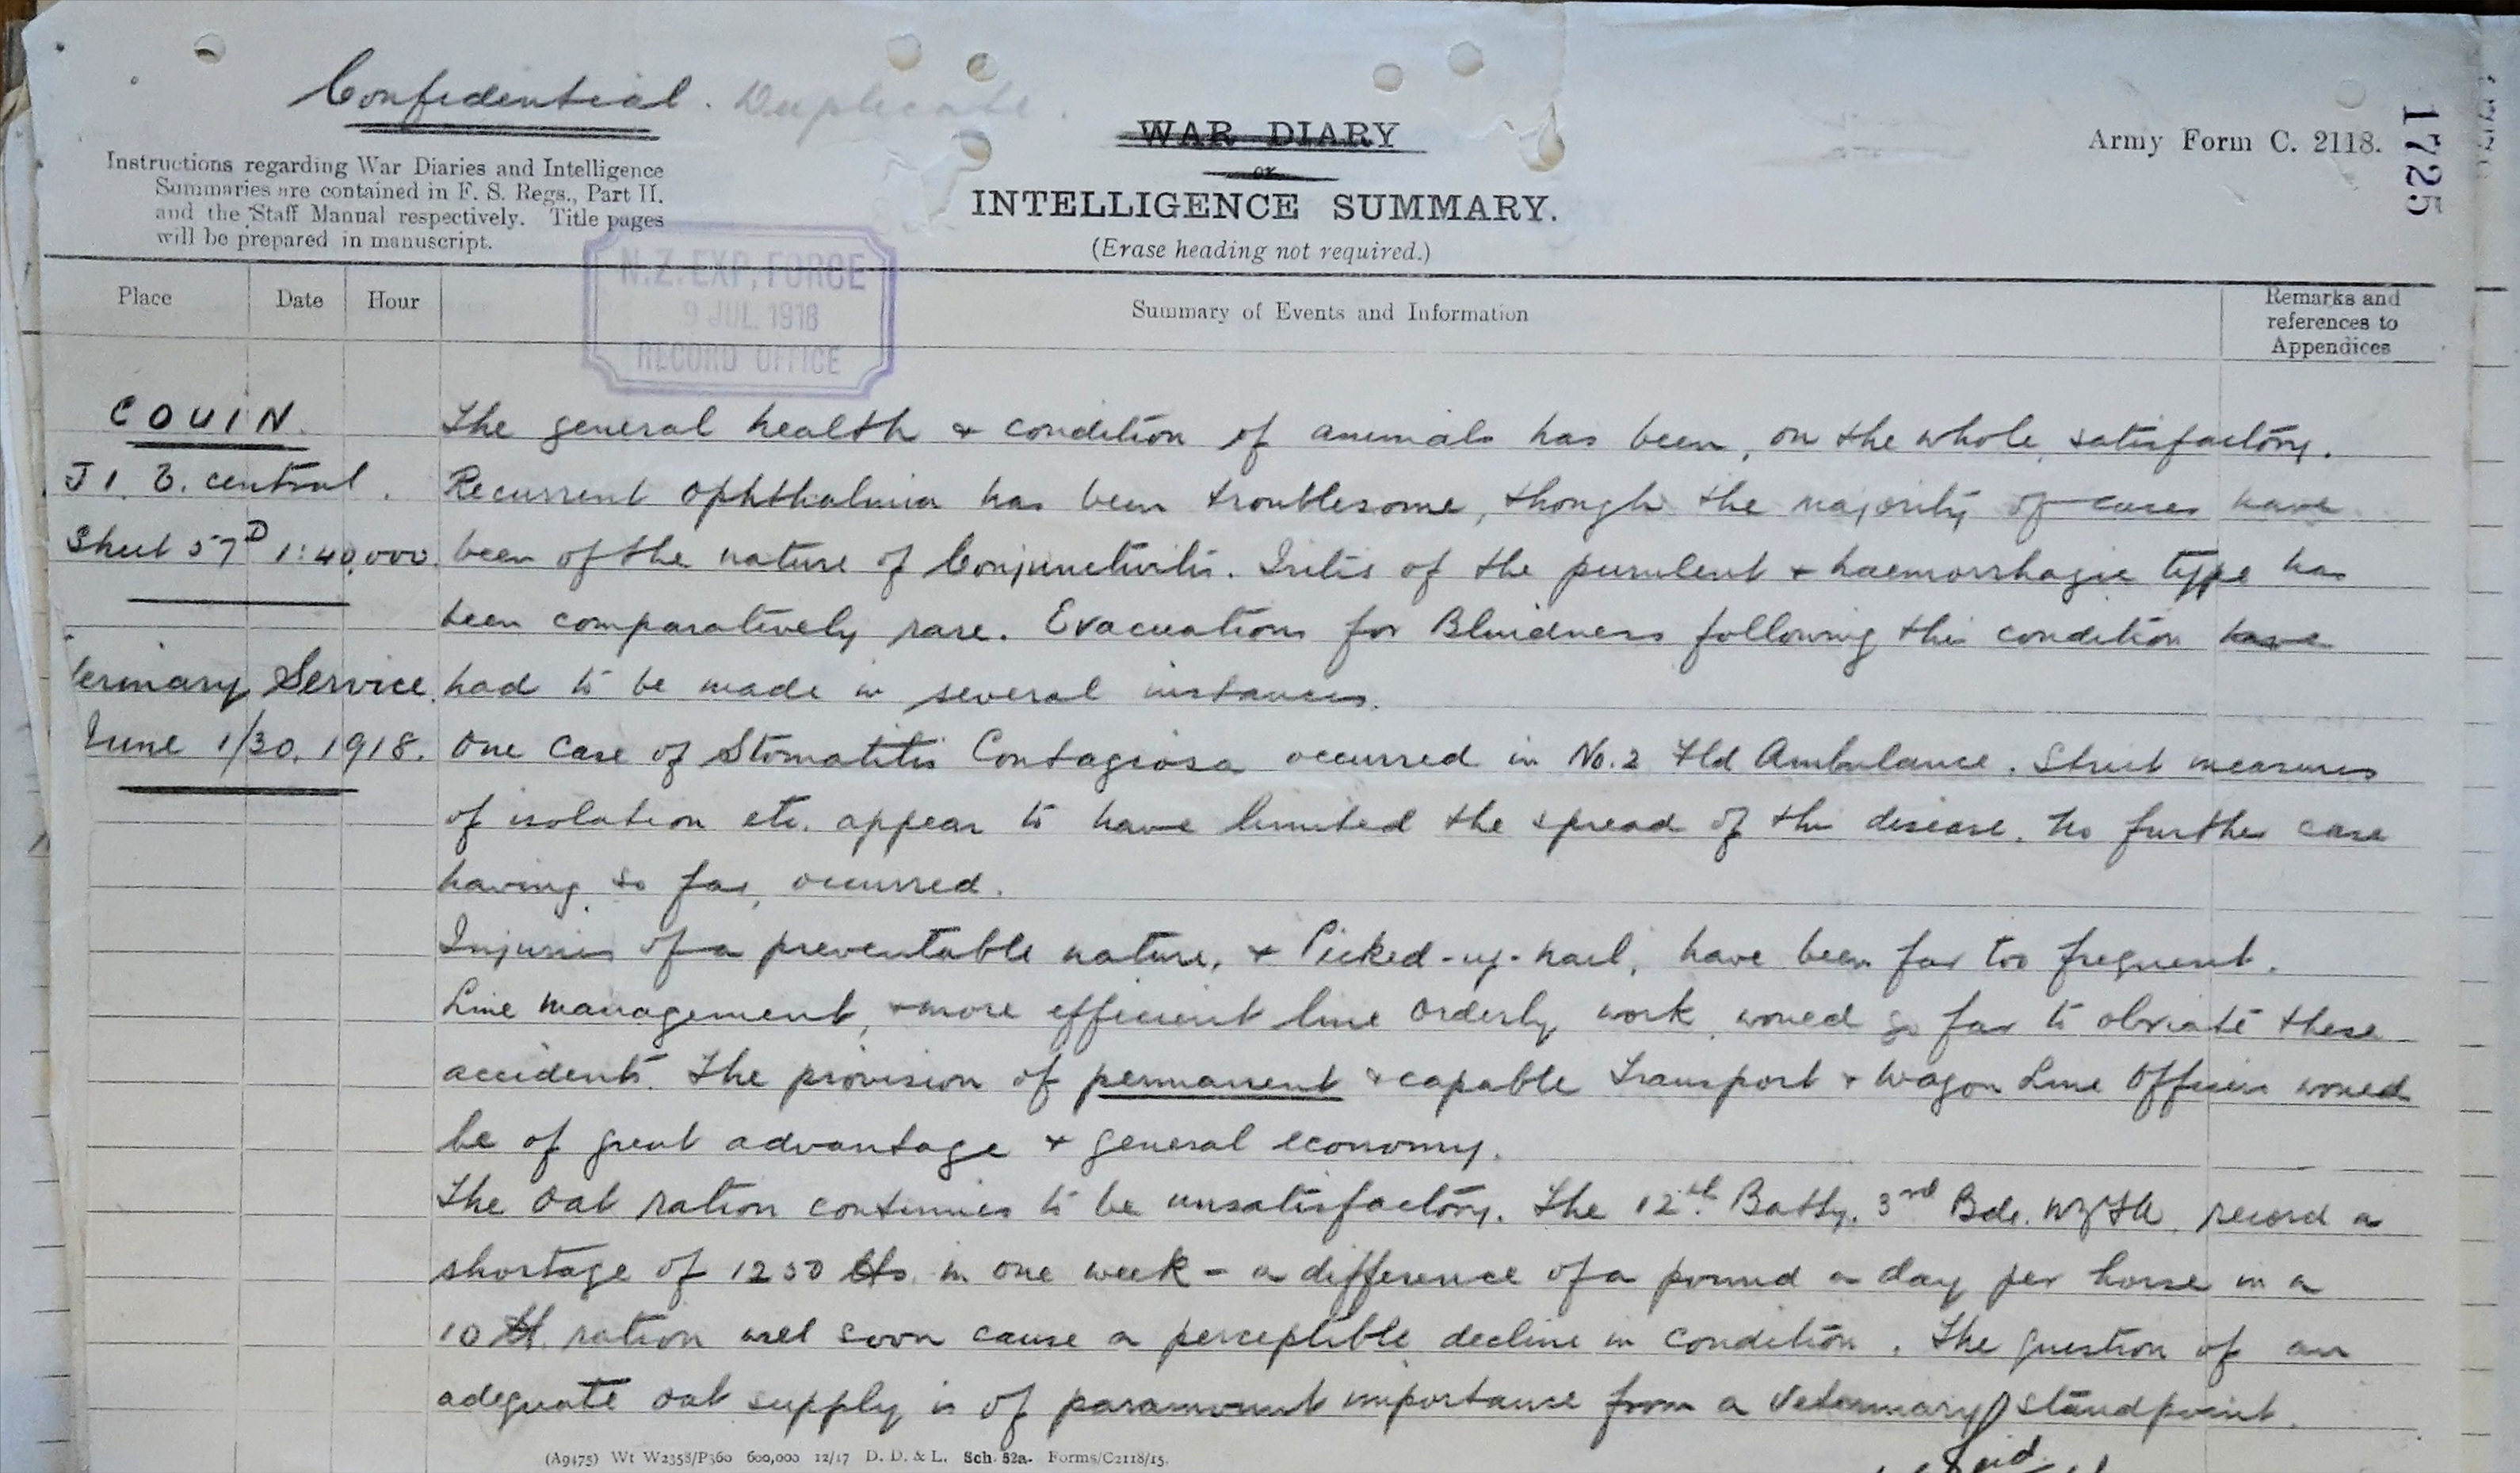 Confidential. Duplicate.
WAR DIARY
or
INTELLIGENCE SUMMARY.
(Erase heading not required.)
Army Form C. 2118.
1725
Instructions regarding War Diaries and Intelligence
Summaries are contained in F. S. Regs., Part II.
and the Staff Manual respectively. Title pages
will be prepared in manuscript.
N.Z. EXP. FORCE
9 JUL 1918
RECORD OFFICE
Place
Date
Hour
Summary of Events and Information
Remarks and
references to
Appendices
COUIN.
J 1. B. central.
Sheet 57D 1:40,000.
erinary Service.
June 1/30. 1918.
The general health & condition of animals has been, on the whole, satisfactory.
Recurrent Ophthalmia has been troublesome, though the majority of cases have
been of the nature of Conjunctivitis. Iritis of the purulent & haemorrhagic type has
been comparatively rare. Evacuations for Blindness following this condition have
had to be made in several instances.
One case of Stomatitis Contagiosa occurred in No. 2 Fld Ambulance. Strict measures
of isolation etc. appear to have limited the spread of the disease, no further case
having, so far, occurred.
Injuries of a preventable nature, & Picked-up-nail, have been far too frequent.
Line management, & more efficient line orderly work, would go far to obviate these
accidents. The provision of permanent & capable Transport & Wagon Line Officers would
be of great advantage & general economy.
The oat ration continues to be unsatisfactory. The 12th Batty. 3rd Bde. NZFA. record a
shortage of 1250 lbs. in one week - a difference of a pound a day per horse in a
10 lb. ration will soon cause a perceptible decline in condition. The question of an
adequate oat supply is of paramount importance from a Veterinary standpoint.
(A9475) Wt W2358/P360 600,000 12/17 D. D. & L. Sch. 52a. Forms/C2118/15.